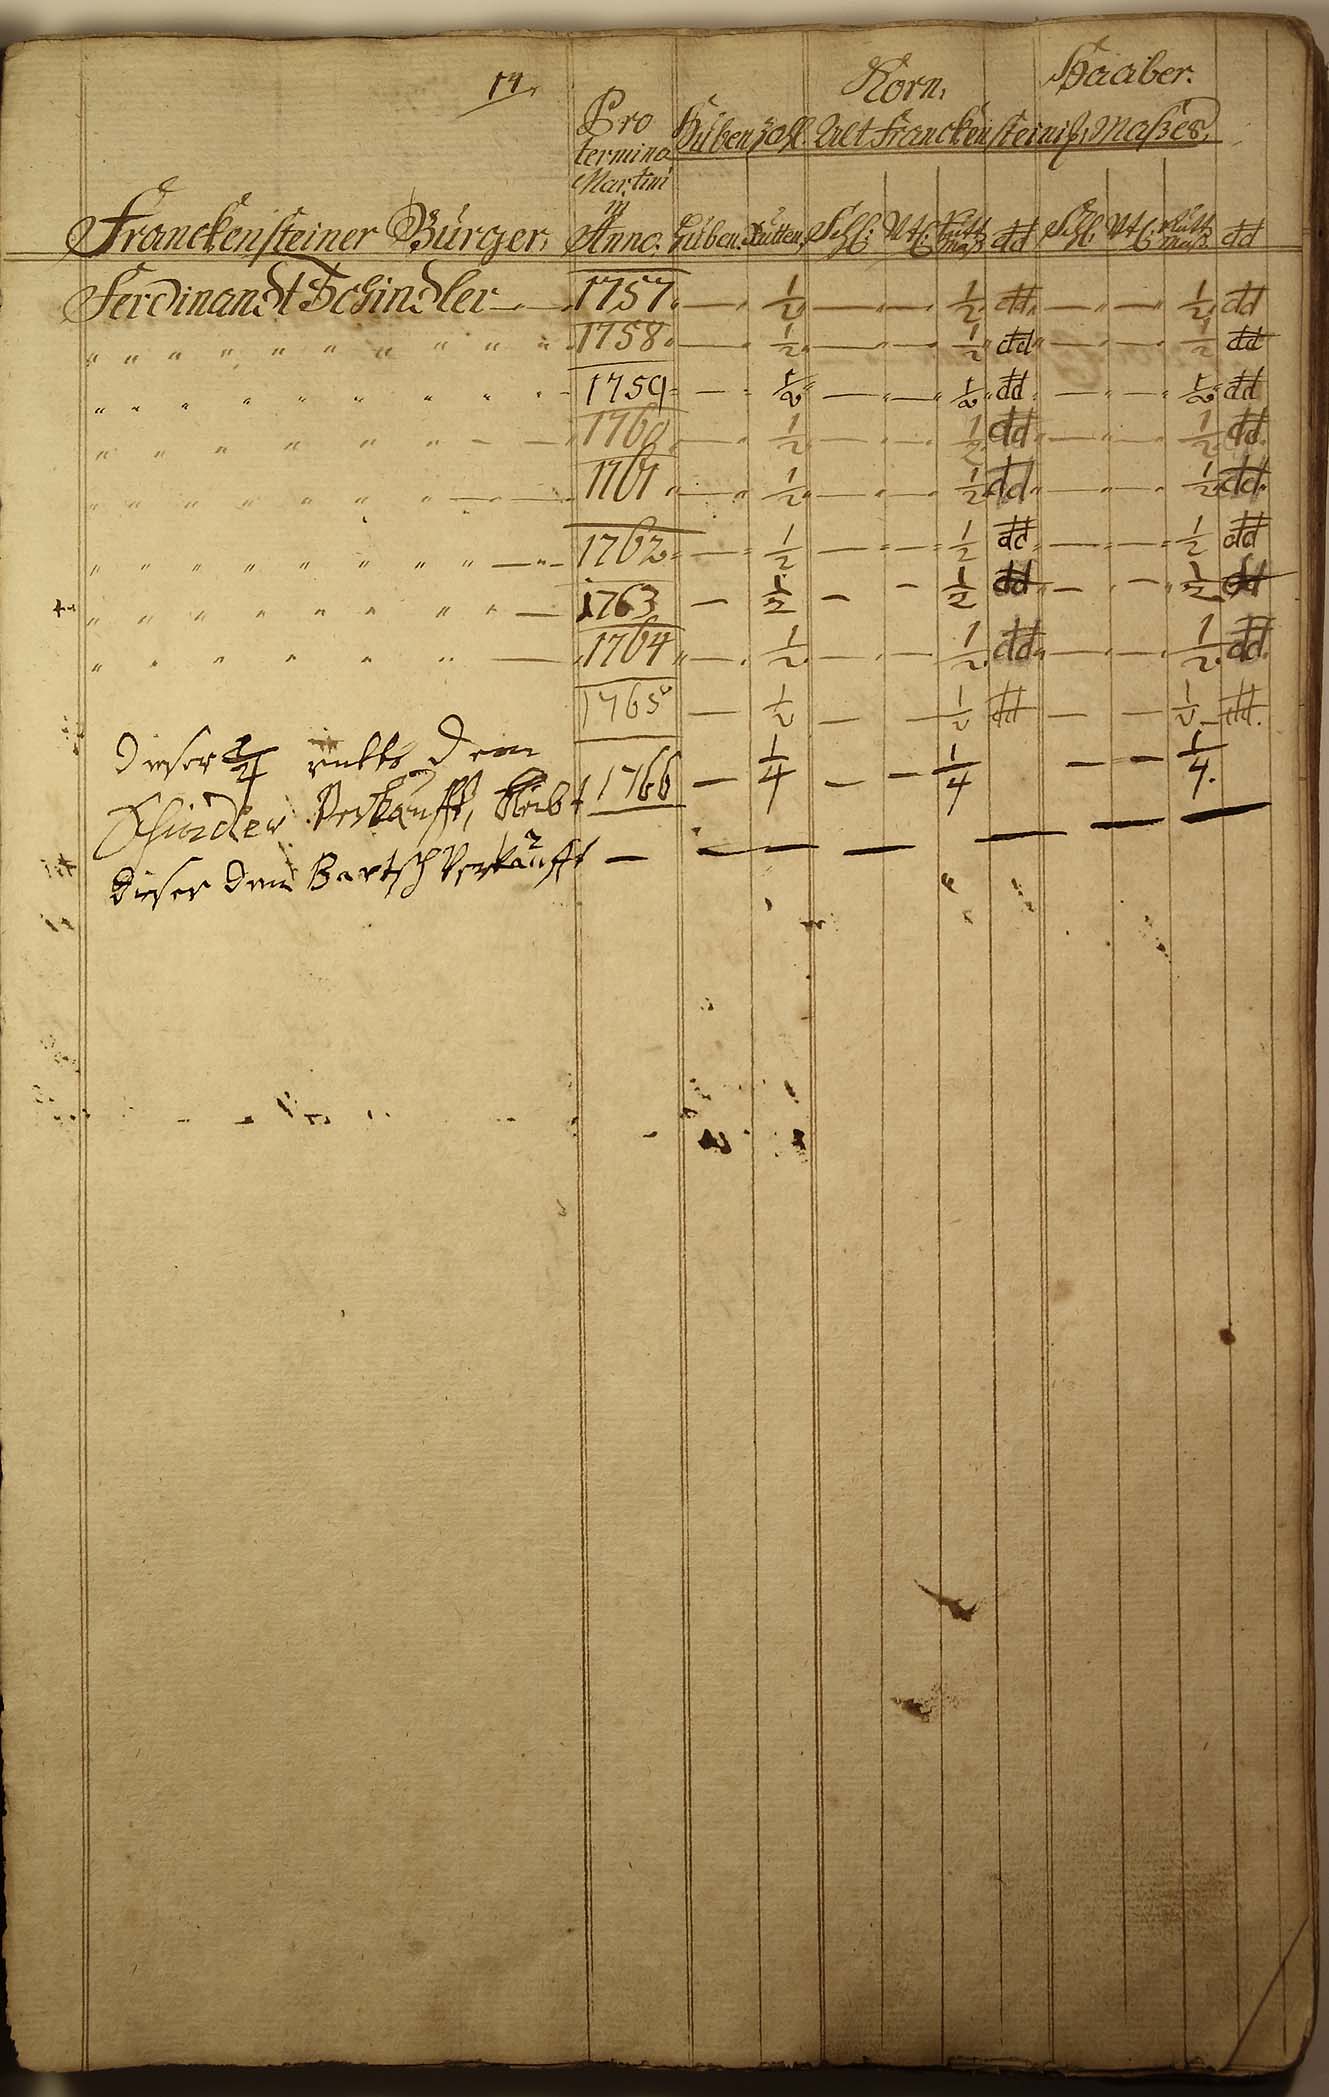 14.
Korn. Haaber.
Pro termino Martini in Anno. Huben Zahl. Alt Franckensteinisch Maßes.
Franckensteiner Bürger, Huben. Rutten. Schl: Vtl: Rutt Maß dd Schl. Vtl: Rutt Maß. dd
Ferdinandt Schindler — 1757. — 1/2 — — 1/2 dd — — 1/2 dd
" " " " " " " " " " 1758. — 1/2 — — 1/2 dd — — 1/2 dd
" " " " " " " " " " 1759 — 1/2 — — 1/2 dd — — 1/2 dd
" " " " " " — — 1760 — 1/2 — — 1/2 dd — — 1/2 dd.
" " " " " " " — — 1761 — 1/2 — — 1/2 dd — — 1/2 dd.
" " " " " " " " " — 1762 — 1/2 — — 1/2 dd — — 1/2 dd
" " " " " " " " " — 1763 — 1/2 — — 1/2 dd — — 1/2 dd
" " " " " " — 1764 — 1/2 — — 1/2 dd — — 1/2 dd.
1765 — 1/2 — — 1/2 dd — — 1/2 dd.
dieser 1/4 rutte dem
Schindler Verkaufft, bleibt 1766 — 1/4 — — 1/4 — — 1/4.
dieser dem Bartsch Verkaufft — — — — — — —